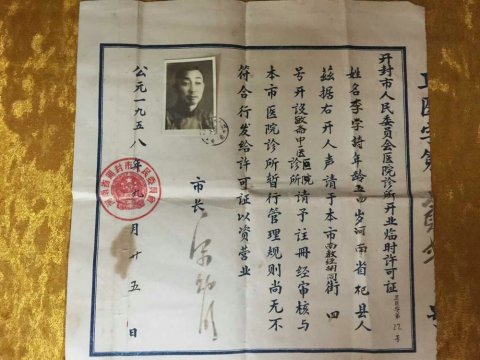 开封市人民委员会医院诊所开业临时许可证
卫医字第22号
姓名李学诗年龄五四岁河南省杞县人
兹据右开人声请于本市南教经胡同街四
号开设敬斋中医诊所医院请予注册经审核与
本市医院诊所暂行管理规则尚无不
符合行发给许可证以资营业
市长
公元一九五八年九月十五日